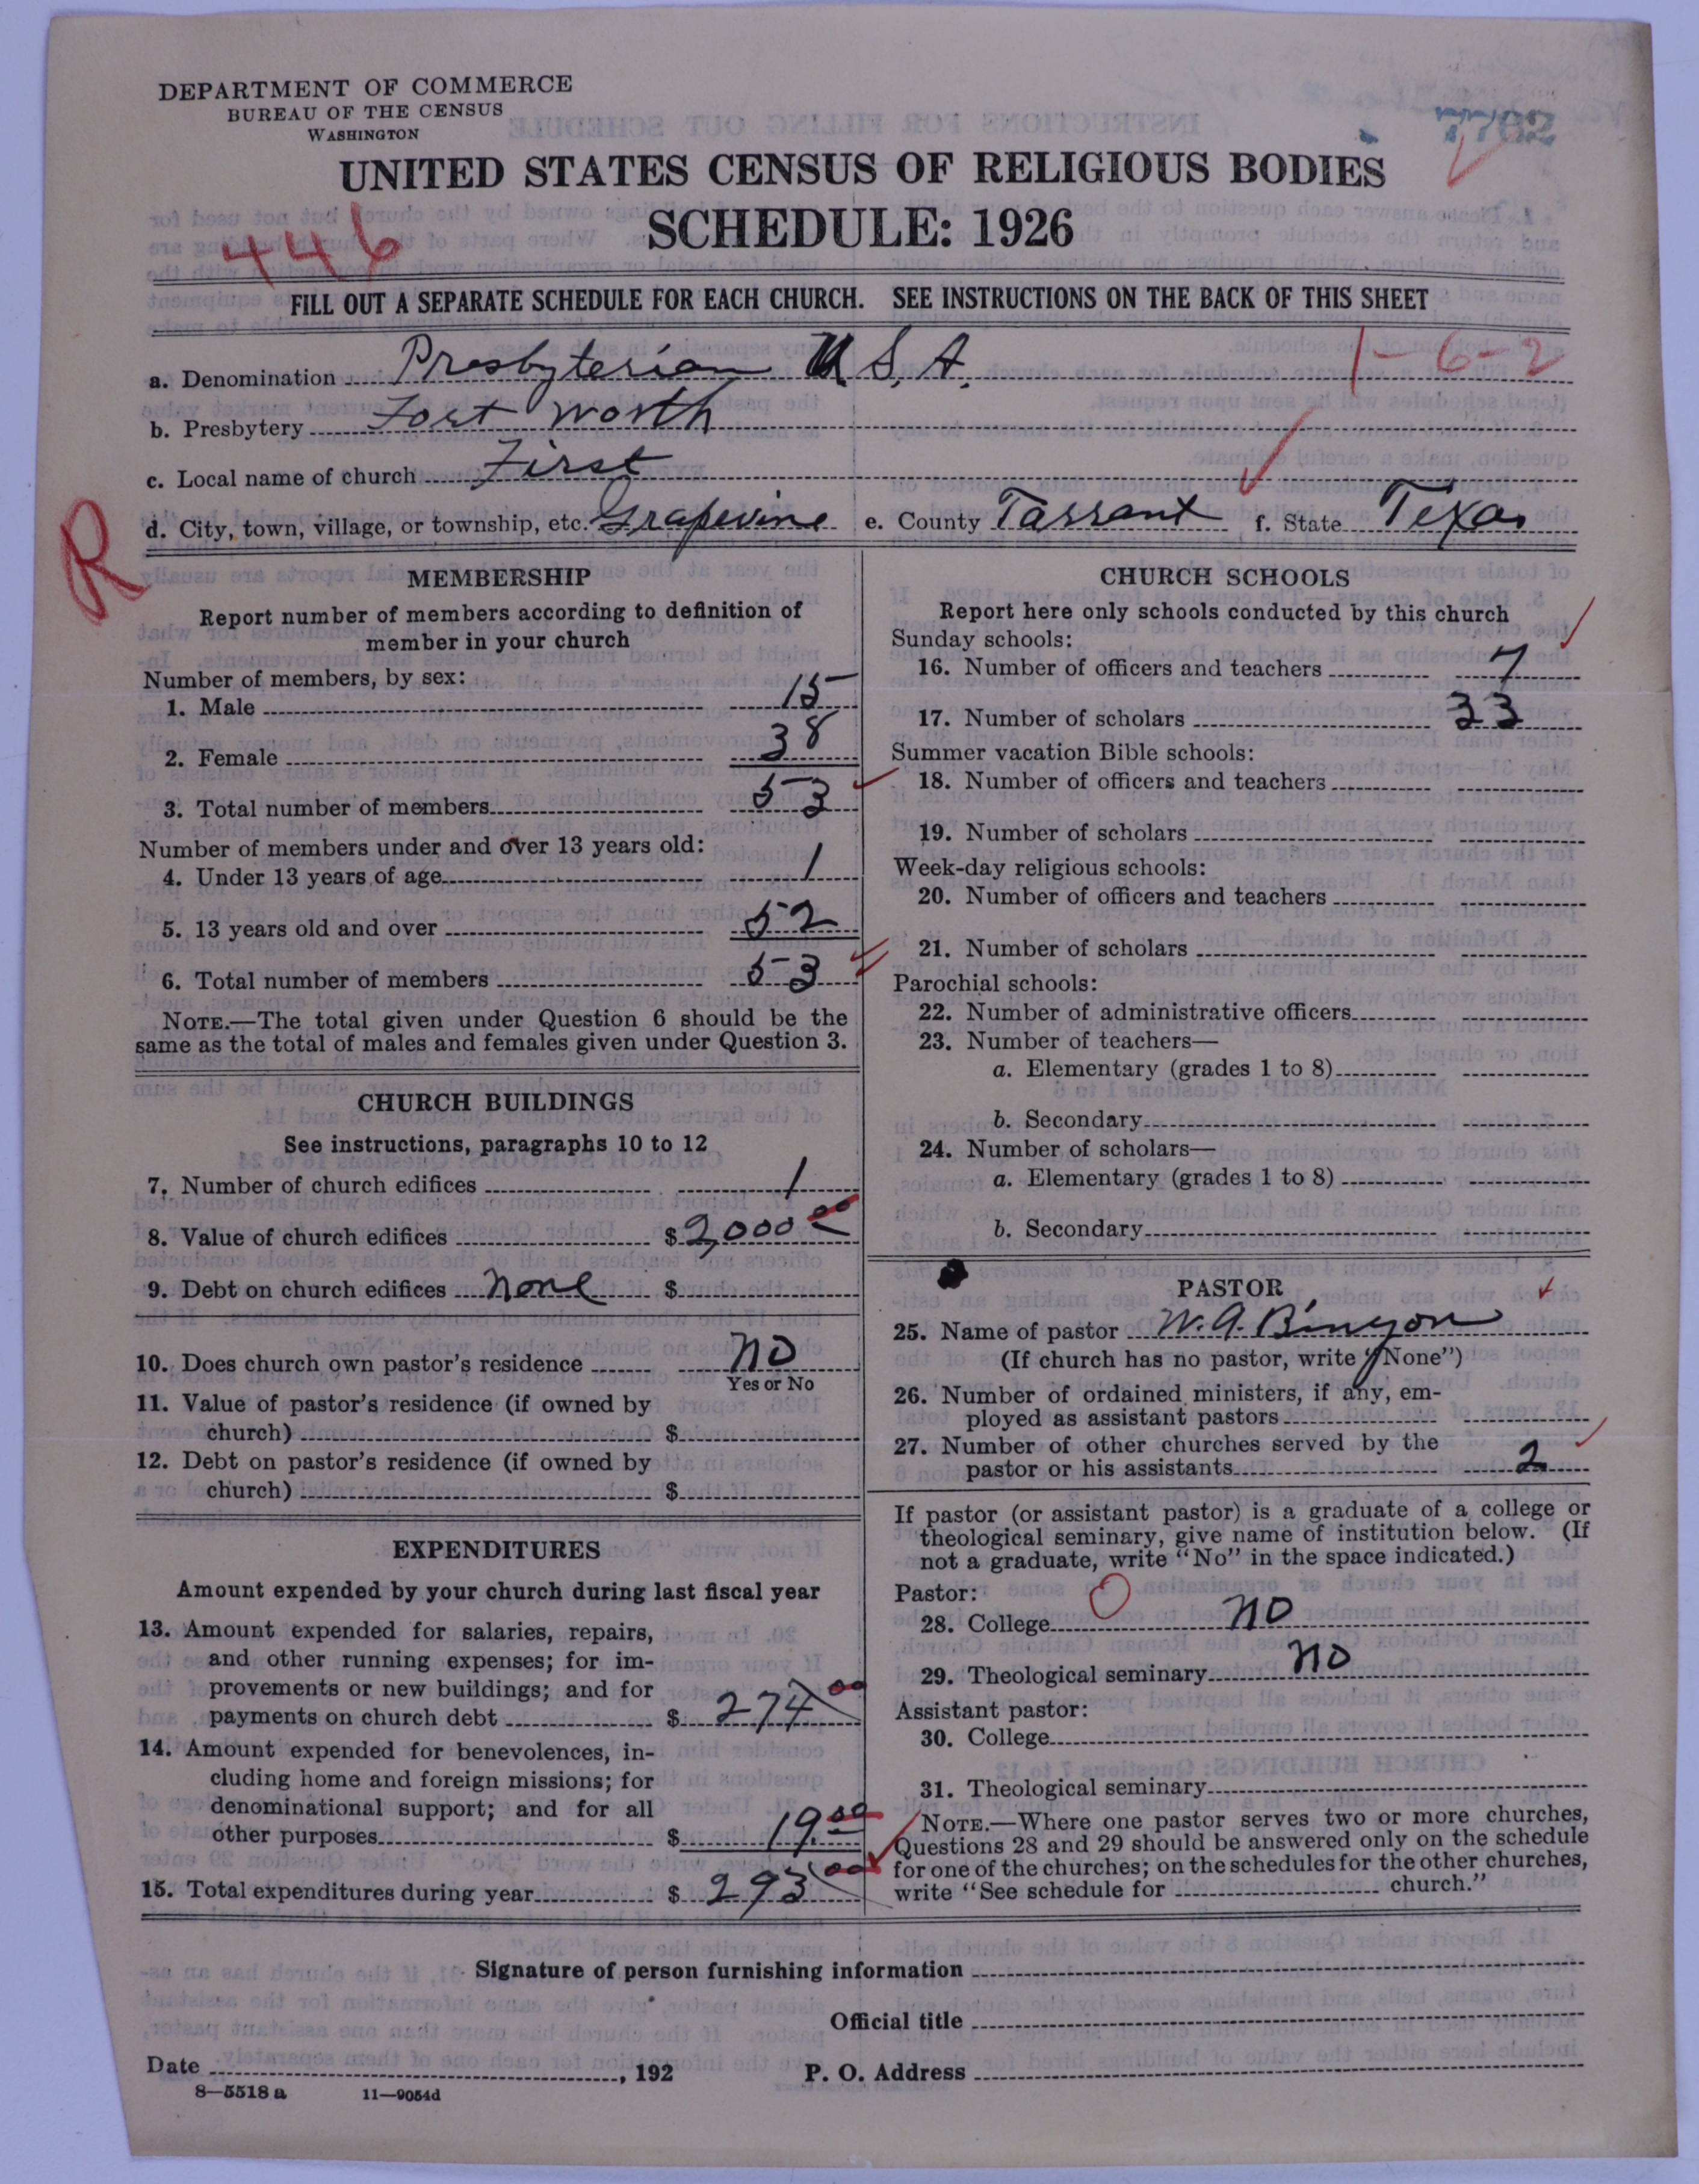 DEPARTMENT OF COMMERCE
BUREAU OF THE CENSUS
WASHINGTON
UNITED STATES CENSUS OF RELIGIOUS BODIES
SCHEDULE: 1926
446
FILL OUT A SEPARATE SCHEDULE FOR EACH CHURCH. SEE INSTRUCTIONS ON THE BACK OF THIS SHEET
1-6-2
a. Denomination Presbyterian U.S.A.
b. Presbytery Fort Worth
c. Local name of church First
d. City, town, village, or township, etc. Grapevine e. County Tarrant f. State Texas
R
MEMBERSHIP
Report number of members according to definition of
member in your church
Number of members, by sex:
1. Male 15
2. Female 38
3. Total number of members 53
Number of members under and over 13 years old:
4. Under 13 years of age 1
5. 13 years old and over 52
6. Total number of members 53
NOTE.—The total given under Question 6 should be the
same as the total of males and females given under Question 3.
CHURCH BUILDINGS
See instructions, paragraphs 10 to 12
7. Number of church edifices 1
8. Value of church edifices $ 2,000 00
9. Debt on church edifices None $
10. Does church own pastor's residence no
Yes or No
11. Value of pastor's residence (if owned by
church) $
12. Debt on pastor's residence (if owned by
church) $
EXPENDITURES
Amount expended by your church during last fiscal year
13. Amount expended for salaries, repairs,
and other running expenses; for im-
provements or new buildings; and for
payments on church debt $ 274 00
14. Amount expended for benevolences, in-
cluding home and foreign missions; for
denominational support; and for all
other purposes $ 19.00
15. Total expenditures during year $ 293 00
CHURCH SCHOOLS
Report here only schools conducted by this church
Sunday schools:
16. Number of officers and teachers 7
17. Number of scholars 33
Summer vacation Bible schools:
18. Number of officers and teachers
19. Number of scholars
Week-day religious schools:
20. Number of officers and teachers
21. Number of scholars
Parochial schools:
22. Number of administrative officers
23. Number of teachers—
a. Elementary (grades 1 to 8)
b. Secondary
24. Number of scholars—
a. Elementary (grades 1 to 8)
b. Secondary
PASTOR
25. Name of pastor W. A. Binyon
(If church has no pastor, write "None")
26. Number of ordained ministers, if any, em-
ployed as assistant pastors
27. Number of other churches served by the
pastor or his assistants 2
If pastor (or assistant pastor) is a graduate of a college or
theological seminary, give name of institution below. (If
not a graduate, write "No" in the space indicated.)
Pastor:
28. College no
29. Theological seminary no
Assistant pastor:
30. College
31. Theological seminary
NOTE.—Where one pastor serves two or more churches,
Questions 28 and 29 should be answered only on the schedule
for one of the churches; on the schedules for the other churches,
write "See schedule for church."
Signature of person furnishing information
Official title
Date , 192 P. O. Address
8—5518 a 11—9054d